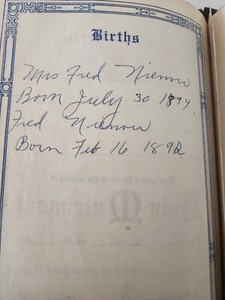 Births
Mrs Fred Niemow
Born July 30 1894
Fred Niemow
Born Feb 16 1892